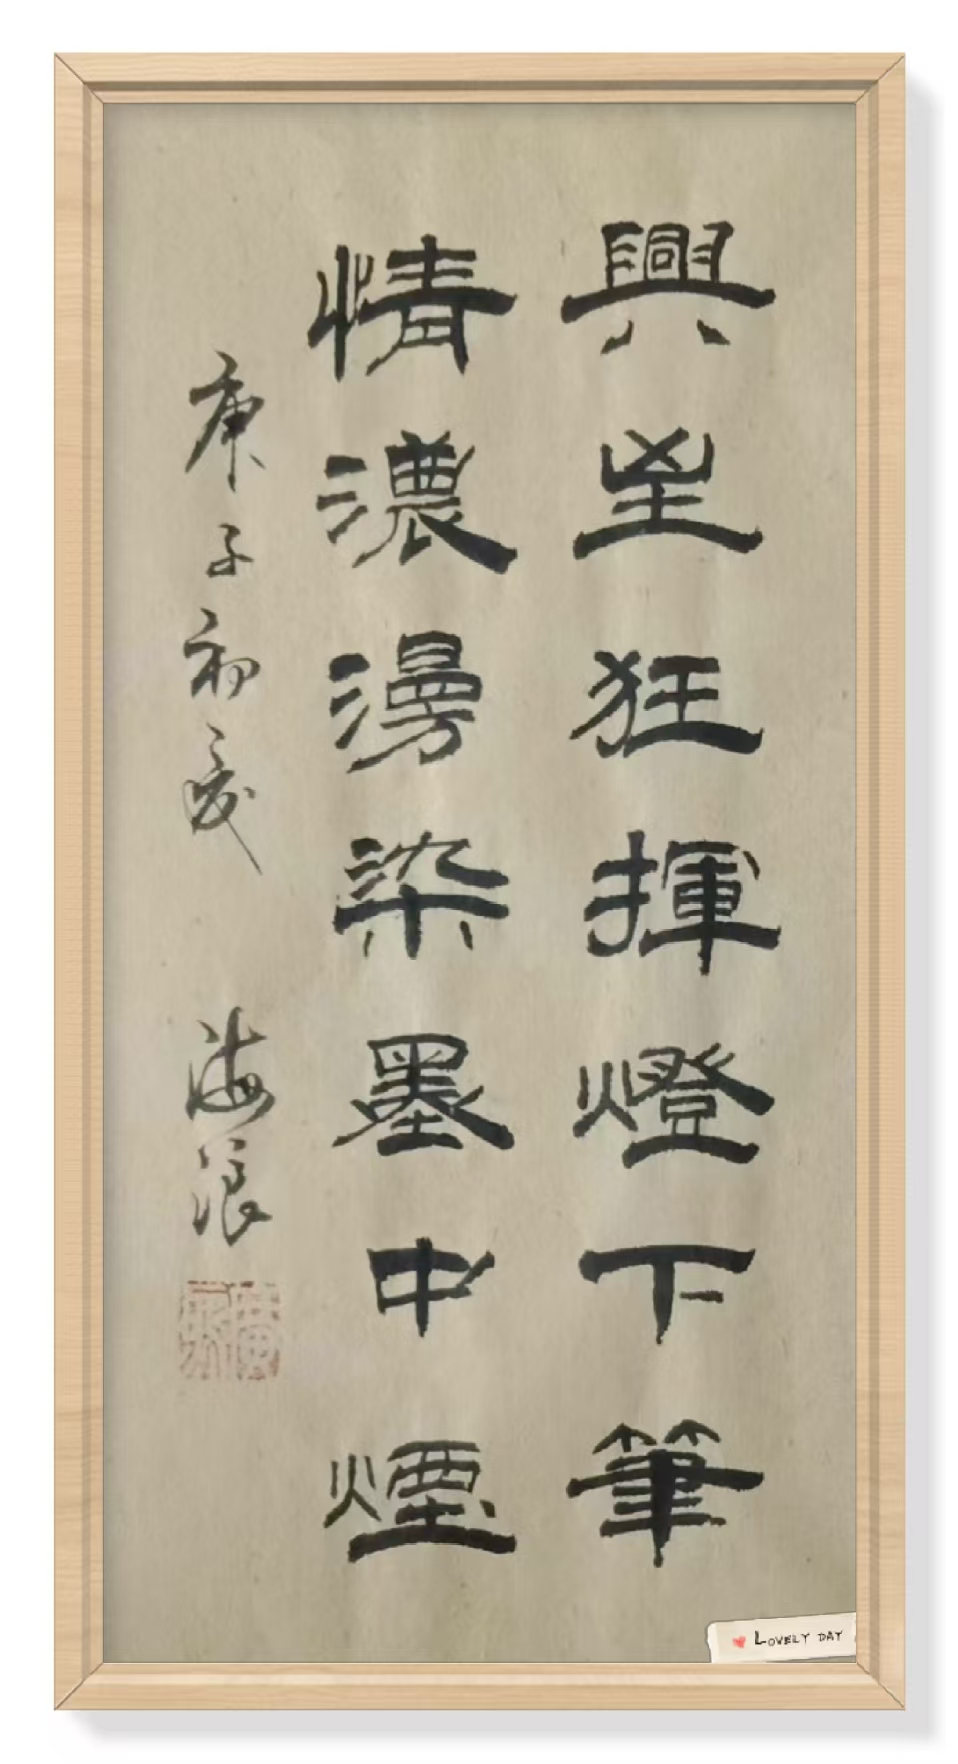 興至狂揮燈下筆
情濃漫染墨中煙
庚子初夏
海浪
LOVELY DAY